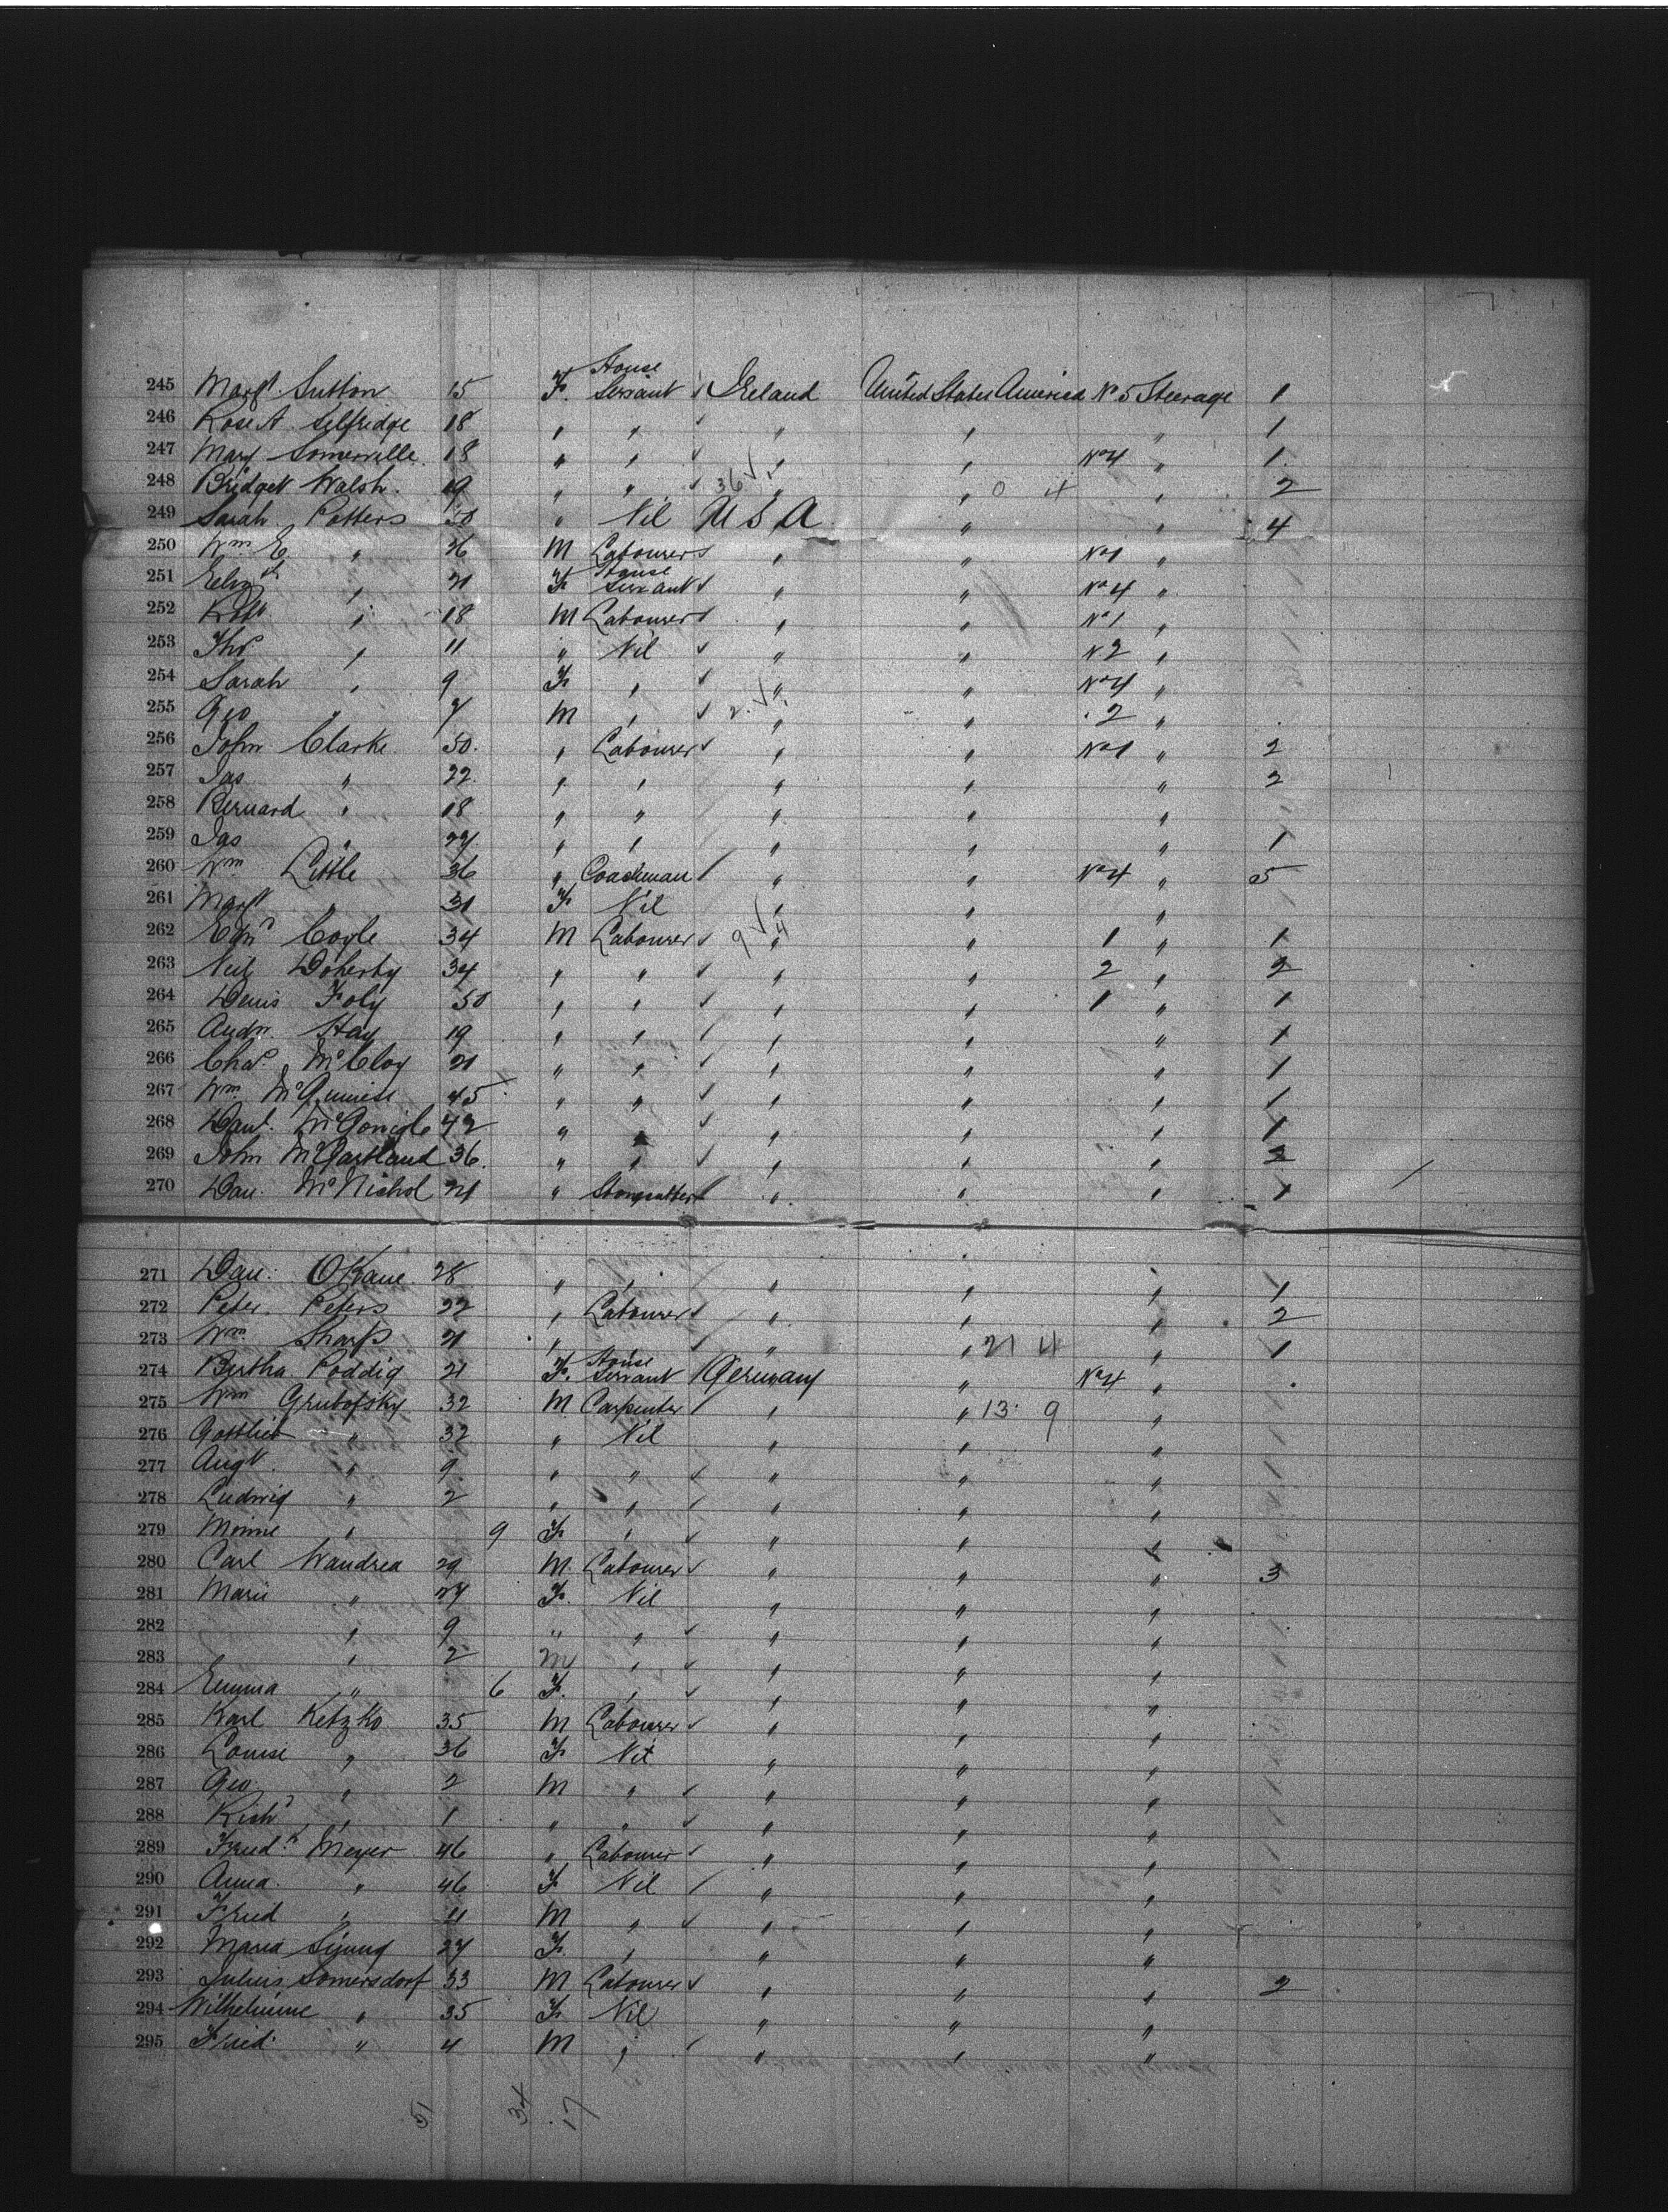 House
245 Margt. Sutton 15 F. Servant Ireland United States America No 5 Steerage 1
246 Rose A. Selfridge 18 " " " " " 1
247 Mary Somerville 18 " " " " No 4 " 1
248 Bridget Walsh. 19 " " 36 " " 0 4 " 2
249 Sarah Potters 50 " Nil U S A " " 4
250 Wm E " 26 M Labourer " " No 1 "
House
251 " 21 F Servant " " No 4 "
252 Robt. " 18 M Labourer " " No 1 "
253 " 11 " Nil " " No 2 "
254 Sarah " 9 F " " " No 4 "
255 Geo " 7 M " 2. " " 2 "
256 John Clarke 50. " Labourer " " No 1 " 2
257 Jas " 22. " " " " " 2
258 Bernard " 18 " " " " "
259 Jas " 27. " " " " " 1
260 Wm Little 36 " Coachman " " No 4 " 5
261 Margt " 31 F Nil " " "
262 Coyle 34 M Labourer 9 4 " " 1 " 1
263 Neil Doherty 34 " " " " 2 " 2
264 Denis Foly 50 " " " " 1 " 1
265 Andw Hay 19 " " " " " 1
266 Chas. McCloy 21 " " " " " 1
267 Wm. 45 " " " " " 1
268 Danl. McGonigle 42 " " " " " 1
269 John McGartland 36. " " " " " 2
270 Dan. McNichol 21 " Stonecutter " " " 1
271 Dan: O'Kane 28 " " " " " 1
272 Peter. Peters 22 " Labourer " " " 2
273 Wm. Sharp 21 " " " " 21 4 " 1
House
274 Bertha Poddig 21 F. Servant Germany " No 4 "
275 Wm Grubofsky 32 M Carpenter " " 13. 9 "
276 Gottlieb " 32 " Nil " " "
277 Augt. " 9. " " " " "
278 Ludwig " 2 " " " " "
279 Minne " 9 F " " " "
280 Carl Wandrea 29 M. Labourer " " " 3
281 Marie " 27 F. Nil " " "
282 " 9 " " " " "
283 " 2 M " " " "
284 Emma " 6 F. " " " "
285 Karl Ketzko 35 M Labourer " " "
286 Louise " 36 F Nil " " "
287 Geo. " 2 M " " " "
288 Richd " 1 " " " " "
289 Fredk Meyer 46 " Labourer " " "
290 Anna. " 46 F Nil " " "
291 Fred " 11 M " " " "
292 Maria 27 F. " " " "
293 Julius Somersdorf 33 M Labourer " " " 2
294 Wilhelmine " 35 F. Nil " " "
295 Fried. " 4 M " " " "
51 34 17